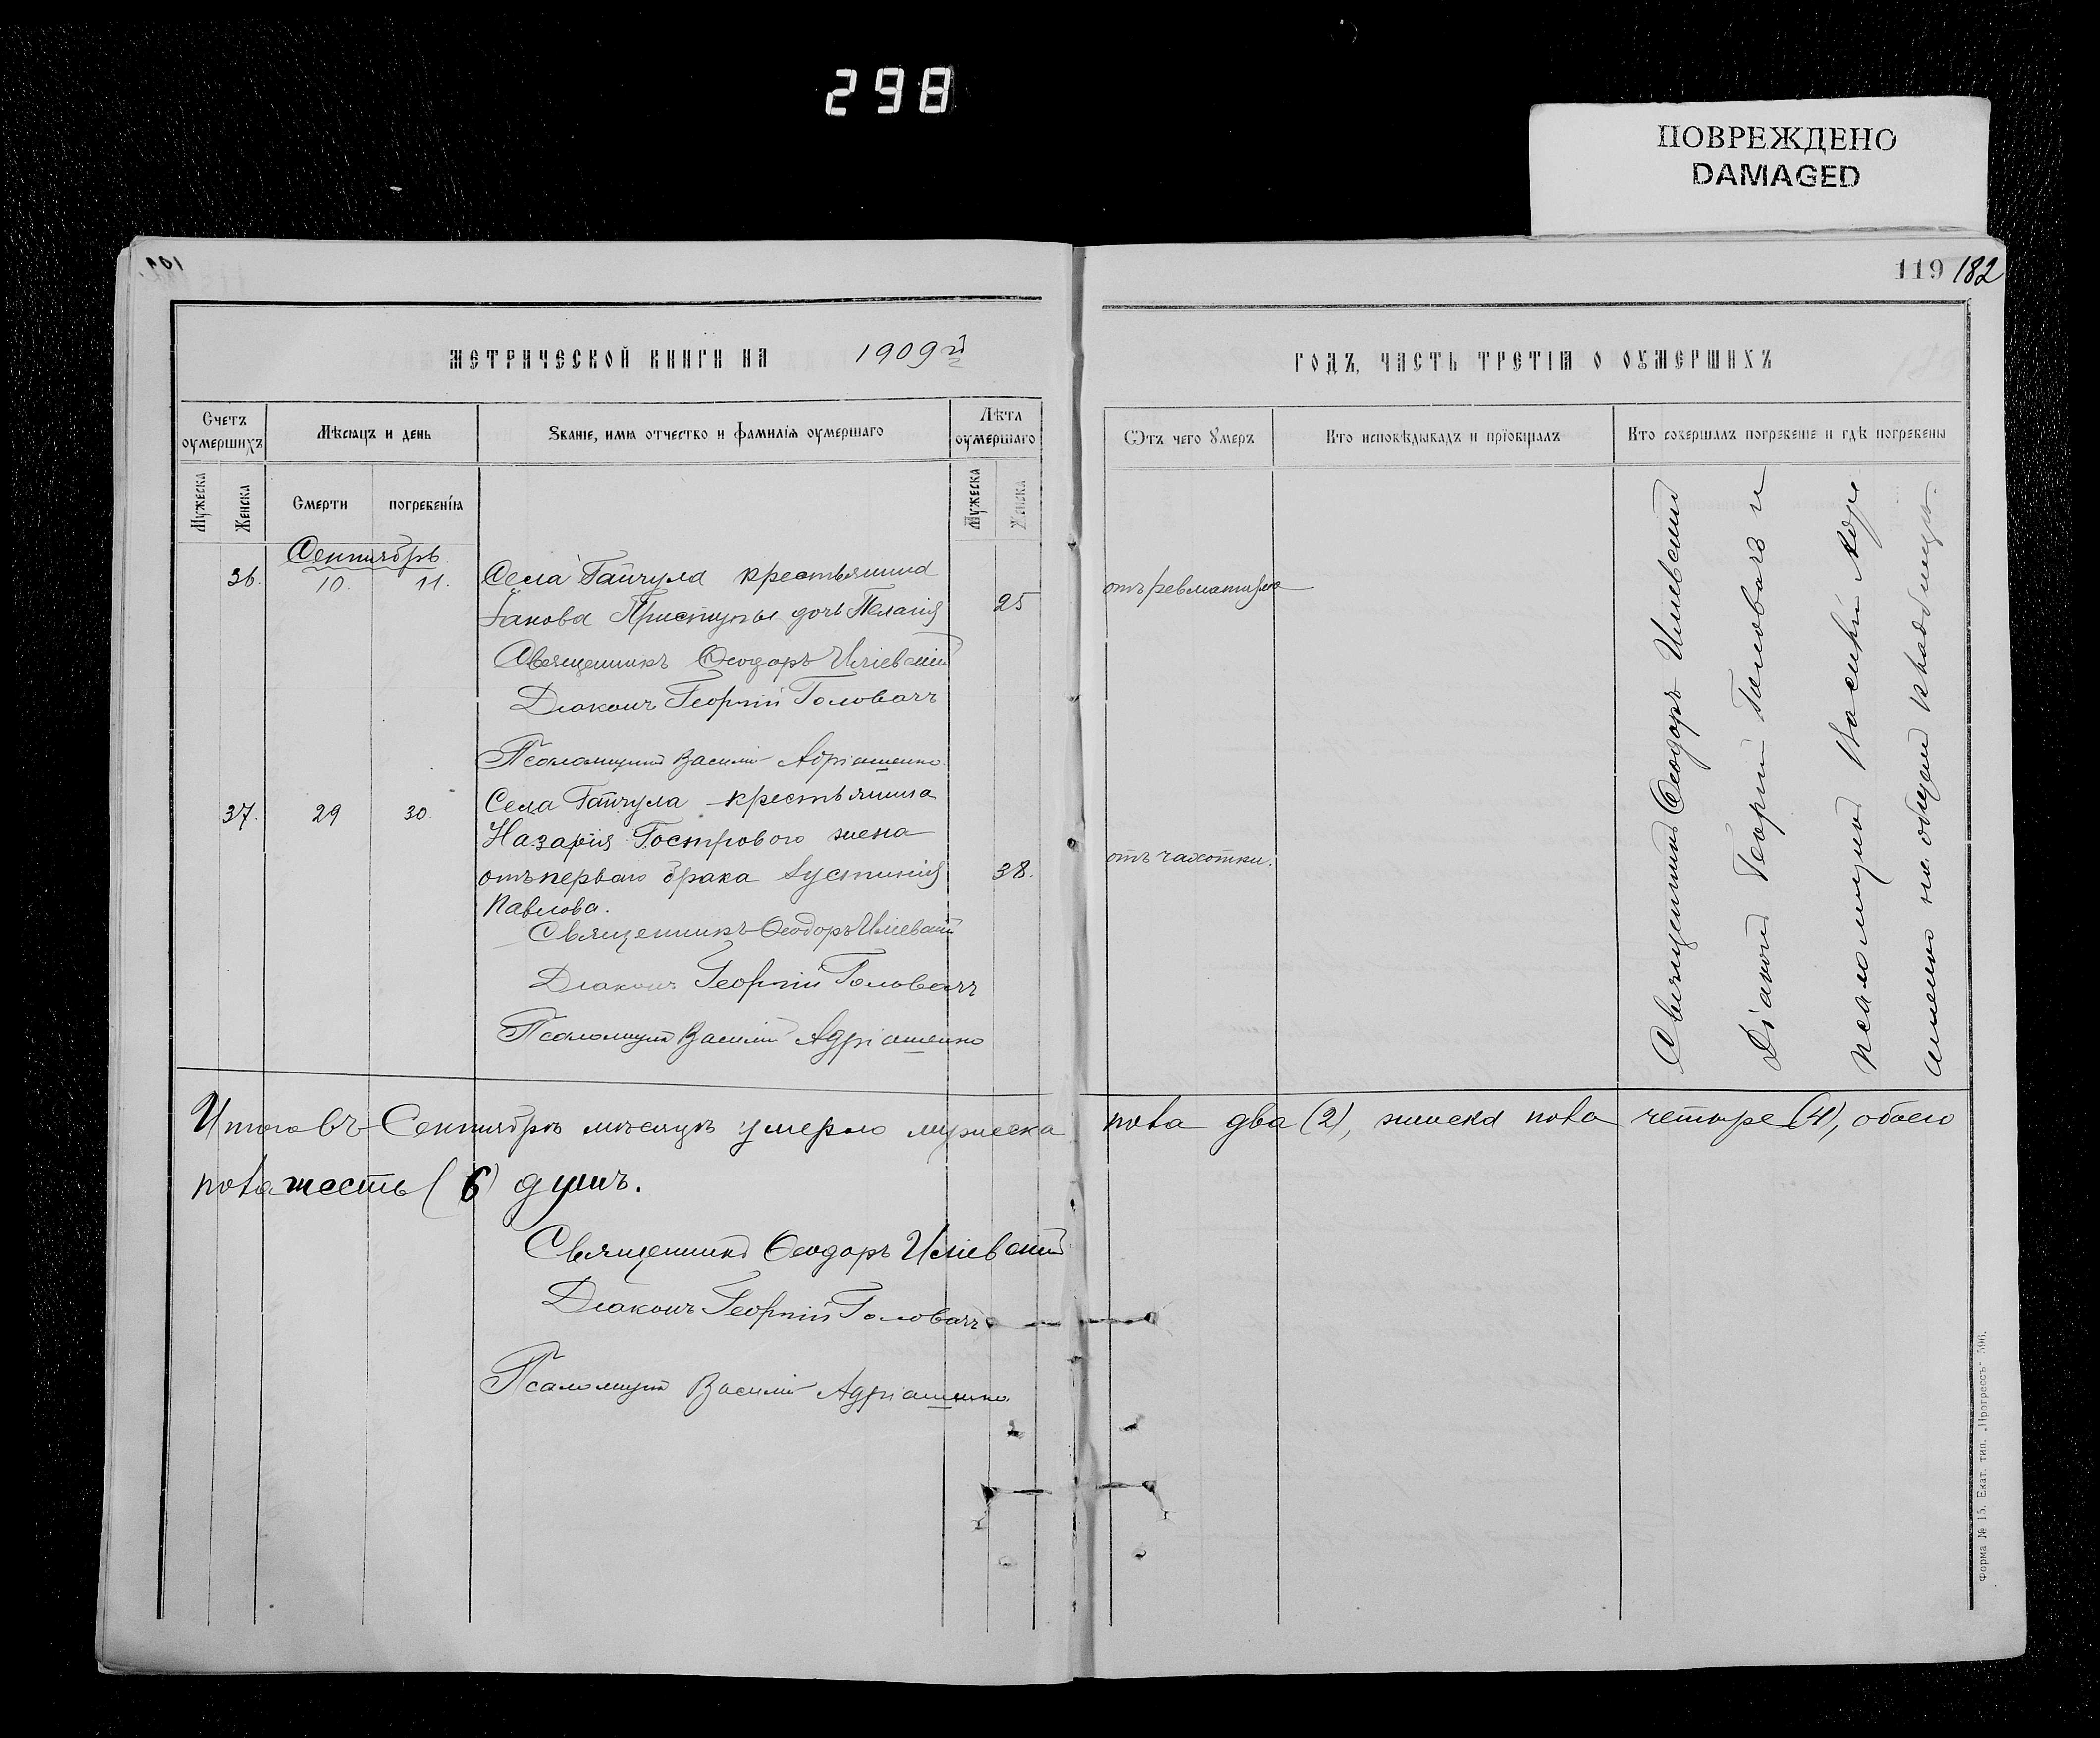 298
ПОВРЕЖДЕНО
DAMAGED
119 182
МЕТРИЧЕСКОЙ КНИГИ НА 1909 й
ГОДЪ, ЧАСТЬ ТРЕТІЯ О ОУМЕРШИХЪ
Счетъ оумершихъ
Мѣсяцъ и день
Званіе, имя отчество и фамилія оумершаго
Лѣта оумершаго
Ѿтъ чего Умеръ
Кто исповѣдывалъ и пріобщалъ
Кто совершалъ погребеніе и гдѣ погребены
Мужеска
Женска
Смерти
погребенія
Мужеска
Женска
Сентябрь.
36. 10. 11. Села Гайчула крестьянина
Іакова Приступы дочь Пелагія 25 отъ ревматизма
Священникъ Ѳеодоръ Иліевскій
Діаконъ Георгій Головачъ
Псаломщикъ Василій Адріашенко.
37. 29 30. Села Гайчула крестьянина
Назарія Гострового жена
отъ перваго брака Іустинія 38. отъ чахотки.
Павлова.
Священникъ Ѳеодоръ Иліевскій
Діаконъ Георгій Головачъ
Псаломщикъ Василій Адріашенко
Священникъ Ѳеодоръ Илиевский
Діаконъ Георгій Головачъ и
псаломщикъ Василій Адрі
ашенко на общем кладбищѣ.
Итого въ Сентябрѣ мѣсяцѣ умерло мужеска пола два (2), женска пола четыре (4), обоего
пола шесть (6) душъ.
Священникъ Ѳеодоръ Иліевскій
Діаконъ Георгій Головачъ
Псаломщикъ Василій Адріашенко.
Форма № 15. Екат. тип. „Прогрессъ" 596.